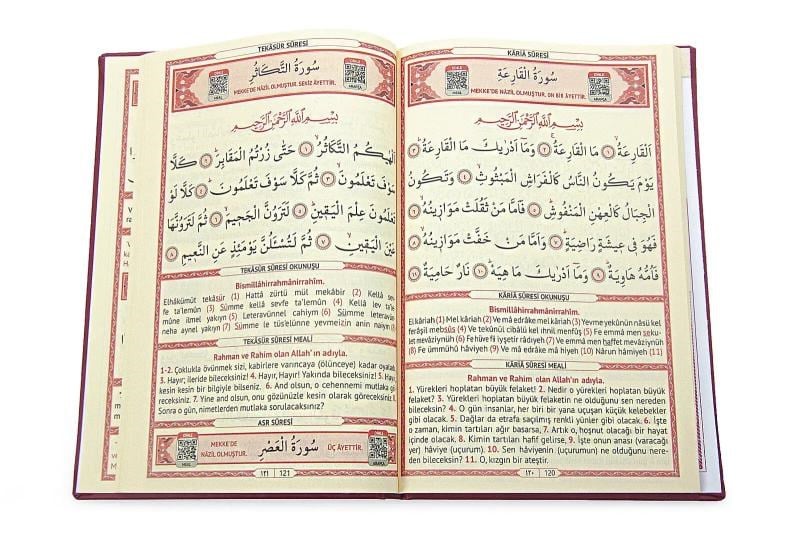 KÂRİA SÛRESİ
DİNLE
MEAL
سُورَةُ الْقَارِعَةِ
DİNLE
ARAPÇA
MEKKE'DE NÂZİL OLMUŞTUR. ON BİR ÂYETTİR.
بِسْمِ اللّٰهِ الرَّحْمٰنِ الرَّحِيمِ
اَلْقَارِعَةُ ۙ ١ مَا الْقَارِعَةُ ۚ ٢ وَمَٓا اَدْرٰيكَ مَا الْقَارِعَةُ ۜ ٣
يَوْمَ يَكُونُ النَّاسُ كَالْفَرَاشِ الْمَبْثُوثِ ۙ ٤ وَتَكُونُ
الْجِبَالُ كَالْعِهْنِ الْمَنْفُوشِ ۜ ٥ فَاَمَّا مَنْ ثَقُلَتْ مَوَازِينُهُ ۙ ٦
فَهُوَ فِي عِيشَةٍ رَاضِيَةٍ ۜ ٧ وَاَمَّا مَنْ خَفَّتْ مَوَازِينُهُ ۙ ٨
فَاُمُّهُ هَاوِيَةٌ ۜ ٩ وَمَٓا اَدْرٰيكَ مَا هِيَهْ ۜ ١٠ نَارٌ حَامِيَةٌ ١١
KÂRİA SÛRESİ OKUNUŞU
Bismillâhirrahmânirrahîm.
El kâriah (1) Mel kâriah (2) Ve mâ edrâke mel kâriah (3) Yevme yekûnün nâsü kel
ferâşil mebsûs (4) Ve tekûnül cibâlü kel ıhnil menfûş (5) Fe emmâ men sekul-
let mevâzîynüh (6) Fe hüve fîi ıyşetir râdıyeh (7) Ve emmâ men haffet mevâzîynüh
(8) Fe ümmühû hâviyeh (9) Ve mâ edrâke mâ hiyeh (10) Nârun hâmiyeh (11)
KÂRİA SÛRESİ MEALİ
Rahman ve Rahim olan Allah'ın adıyla.
1. Yürekleri hoplatan büyük felaket! 2. Nedir o yürekleri hoplatan büyük
felaket? 3. Yürekleri hoplatan büyük felaketin ne olduğunu sen nereden
bileceksin? 4. O gün insanlar, her biri bir yana uçuşan küçük kelebekler
gibi olacak. 5. Dağlar da etrafa saçılmış renkli yünler gibi olacak. 6. İşte
o zaman, kimin tartıları ağır basarsa, 7. Artık o, hoşnut olacağı bir hayat
içinde olacak. 8. Kimin tartıları hafif gelirse, 9. İşte onun anası (varacağı
yer) hâviye (uçurum). 10. Sen hâviyenin (uçurumun) ne olduğunu nere-
den bileceksin? 11. O, kızgın bir ateştir.
١٢٠ 120
TEKÂSÜR SÛRESİ
DİNLE
MEAL
سُورَةُ التَّكَاثُرِ
DİNLE
ARAPÇA
MEKKE'DE NÂZİL OLMUŞTUR. SEKİZ ÂYETTİR.
بِسْمِ اللّٰهِ الرَّحْمٰنِ الرَّحِيمِ
اَلْهٰيكُمُ التَّكَاثُرُ ۙ ١ حَتّٰى زُرْتُمُ الْمَقَابِرَ ۜ ٢ كَلَّا
سَوْفَ تَعْلَمُونَ ۙ ٣ ثُمَّ كَلَّا سَوْفَ تَعْلَمُونَ ۜ ٤ كَلَّا لَوْ
تَعْلَمُونَ عِلْمَ الْيَقِينِ ۜ ٥ لَتَرَوُنَّ الْجَحِيمَ ۙ ٦ ثُمَّ لَتَرَوُنَّهَا
عَيْنَ الْيَقِينِ ۙ ٧ ثُمَّ لَتُسْـَٔلُنَّ يَوْمَئِذٍ عَنِ النَّعِيمِ ٨
TEKÂSÜR SÛRESİ OKUNUŞU
Bismillâhirrahmânirrahîm.
Elhâkümüt tekâsür (1) Hattâ zürtü mül mekâbir (2) Kellâ sev-
fe ta'lemûn (3) Sümme kellâ sevfe ta'lemûn (4) Kellâ lev ta'le
mûne ilmel yakıyn (5) Leteravünnel cahıym (6) Sümme leteravün
neha aynel yakıyn (7) Sümme le tüs'elünne yevmeizin anin naiym (8)
TEKÂSÜR SÛRESİ MEALİ
Rahman ve Rahim olan Allah'ın adıyla.
1-2. Çoklukla övünmek sizi, kabirlere varıncaya (ölünceye) kadar oyaladı.
3. Hayır; ileride bileceksiniz! 4. Hayır, Hayır! Yakında bileceksiniz! 5. Hayır,
kesin kesin bir bilgiyle bilseniz. 6. And olsun, o cehennemi mutlaka gö-
receksiniz. 7. Yine and olsun, onu gözünüzle kesin olarak göreceksiniz. 8.
Sonra o gün, nimetlerden mutlaka sorulacaksınız?
ASR SÛRESİ
DİNLE
MEAL
MEKKE'DE
NÂZİL OLMUŞTUR.
سُورَةُ الْعَصْرِ
ÜÇ ÂYETTİR.
DİNLE
ARAPÇA
١٢١ 121